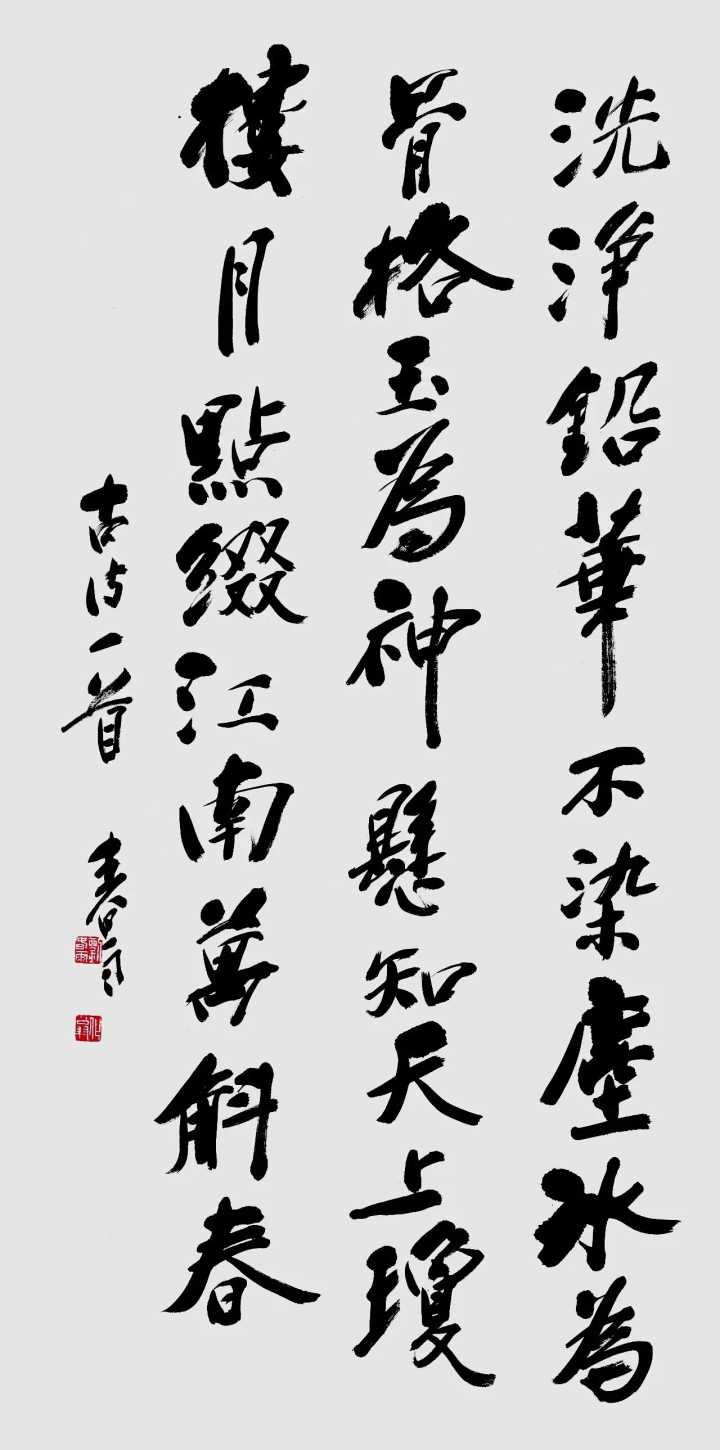 洗淨鉛華不染塵冰為
骨格玉為神懸知天上瓊
樓月點綴江南萬斛春
古诗一首 春雨